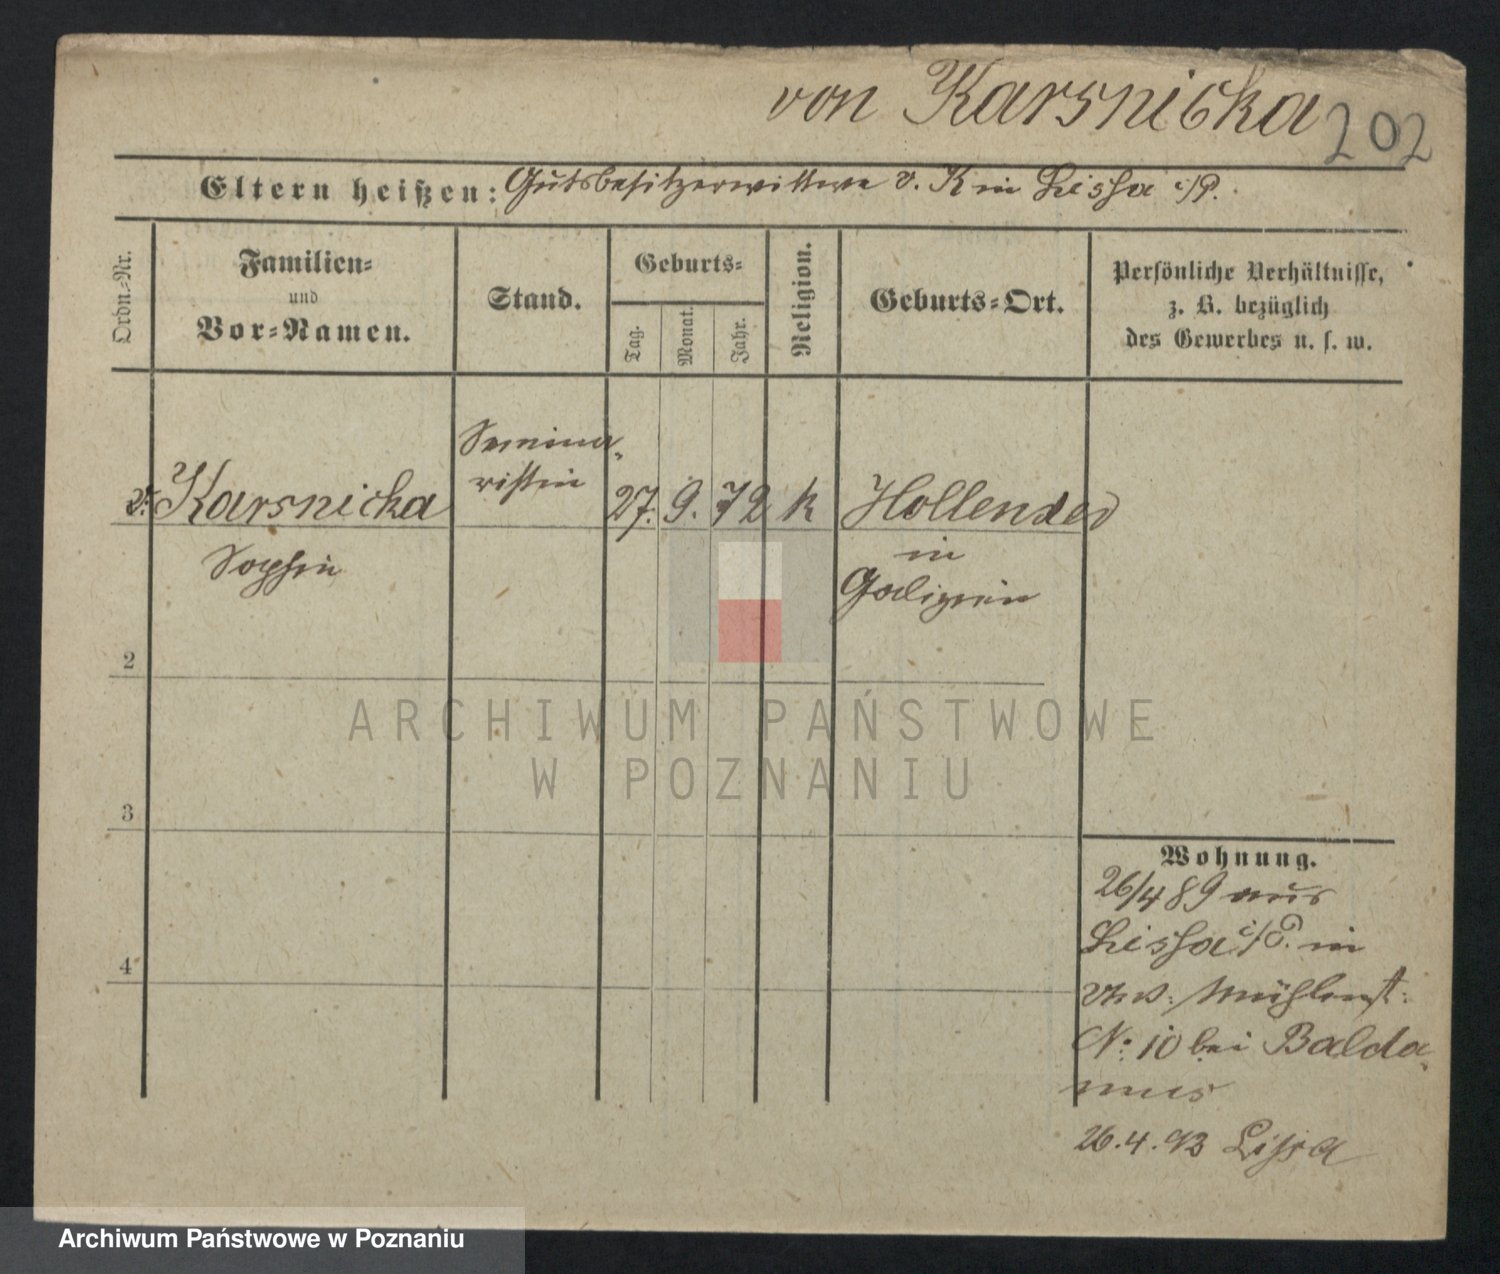 von Karsnicka 202
Eltern heißen: Gutsbesitzerwittwe v. K in Lissa i/P.
Ordn.-Nr.
Familien-
und
Vor-Namen.
Stand.
Geburts-
Tag.
Monat.
Jahr.
Religion.
Geburts-Ort.
Persönliche Verhältnisse,
z. B. bezüglich
des Gewerbes u. s. w.
Semina-
ristin
v. Karsnicka 27. 9. 72 k Hollender
Sophie in
Galizien
2
ARCHIWUM PAŃSTWOWE
W POZNANIU
3
Wohnung.
26/4 89 aus
Lissa i/P. in
Mühlenst:
4
No: 10 bei Balda-
mus
26.4.93 Lissa
Archiwum Państwowe w Poznaniu